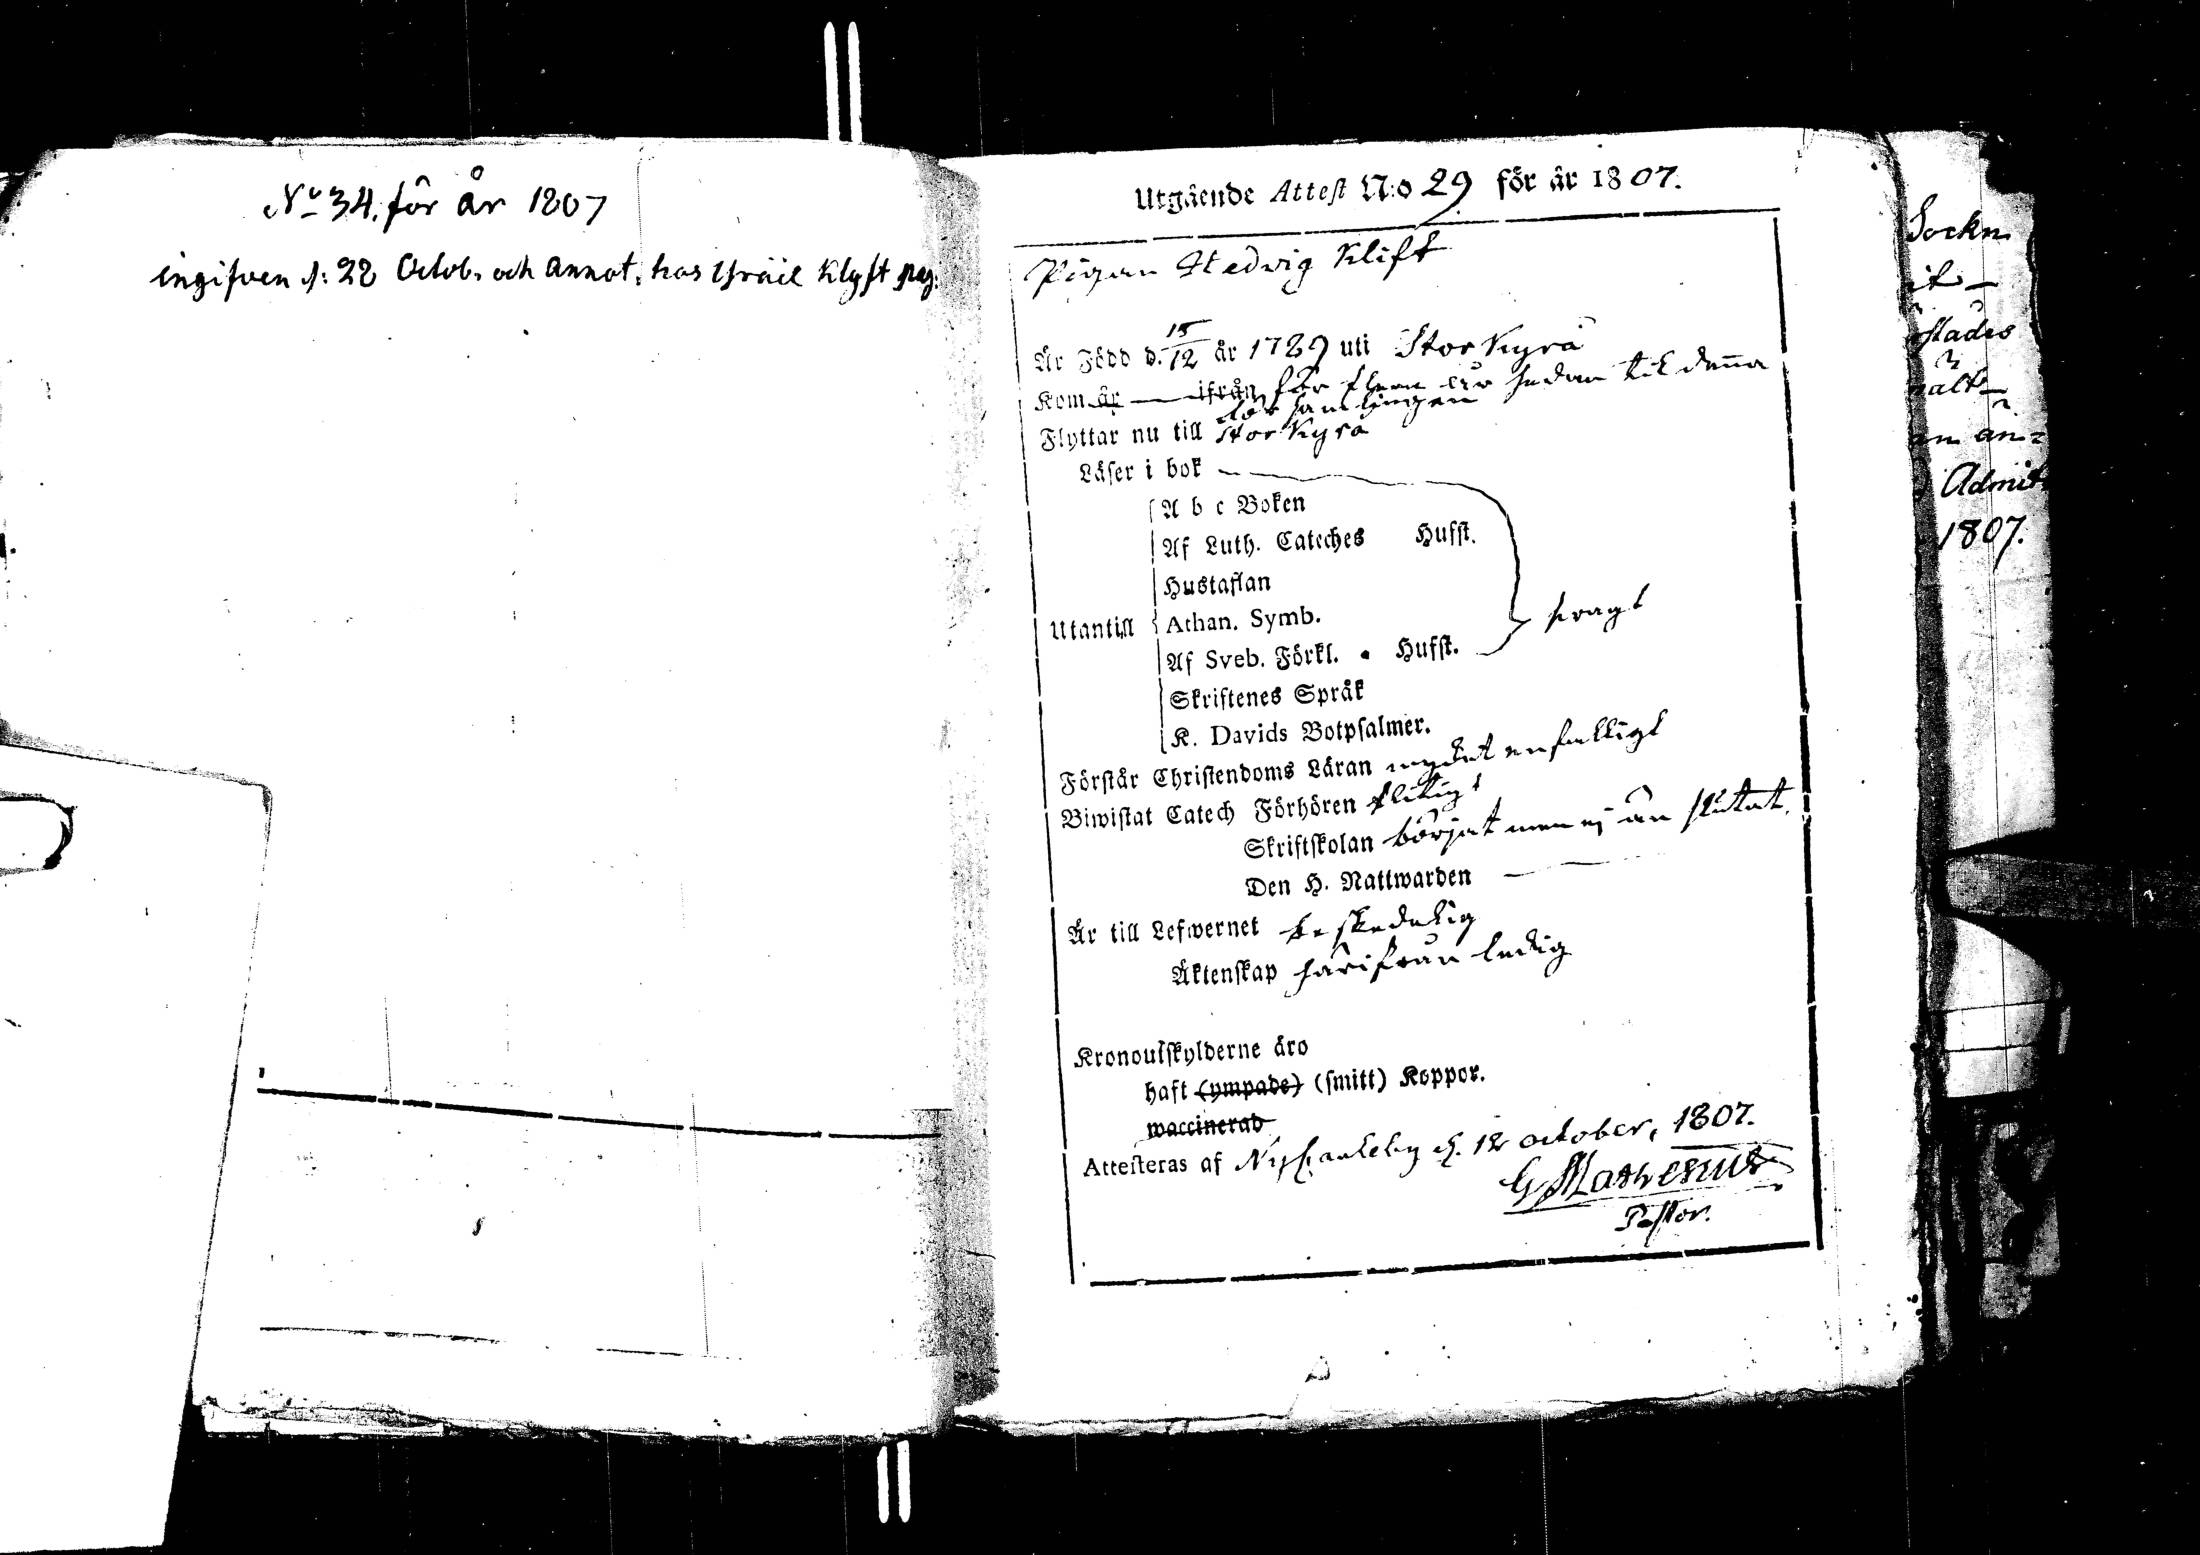 No 34. för år 1807
ingifven d: 28 Octob. och annot. hos Israël Klyft pag:
Utgående Attest N:o 29 för år 1807.
Pigan Hedvig Klift
Är Född d. 15/12 år 1789 uti Storkyrå
Kom år — ifrån för flere år sedan till denna
församlingen
Flyttar nu till Storkyrå
Läser i bok
A b c Boken
Af Luth. Cateches Hufst.
Hustaflan
Utantill Athan. Symb. svagt
Af Sveb. Förkl. Hufst.
Skriftenes Språk
K. Davids Botpsalmer.
Förstår Christendoms Läran mycket enfalligt
Biwistat Catech Förhören flitigt
Skriftskolan börjat men ej än slutat.
Den H. Nattwarden —
Är till Lefwernet beskedelig
Äktenskap härifrån ledig
Kronoutskylderne äro
haft (ympade) (smitt) Koppor.
waccinerad
Attesteras af Nykarleby d. 12 october, 1807.
G Mathesius
Pastor.
Sockn
it
stades
Admit
1807.